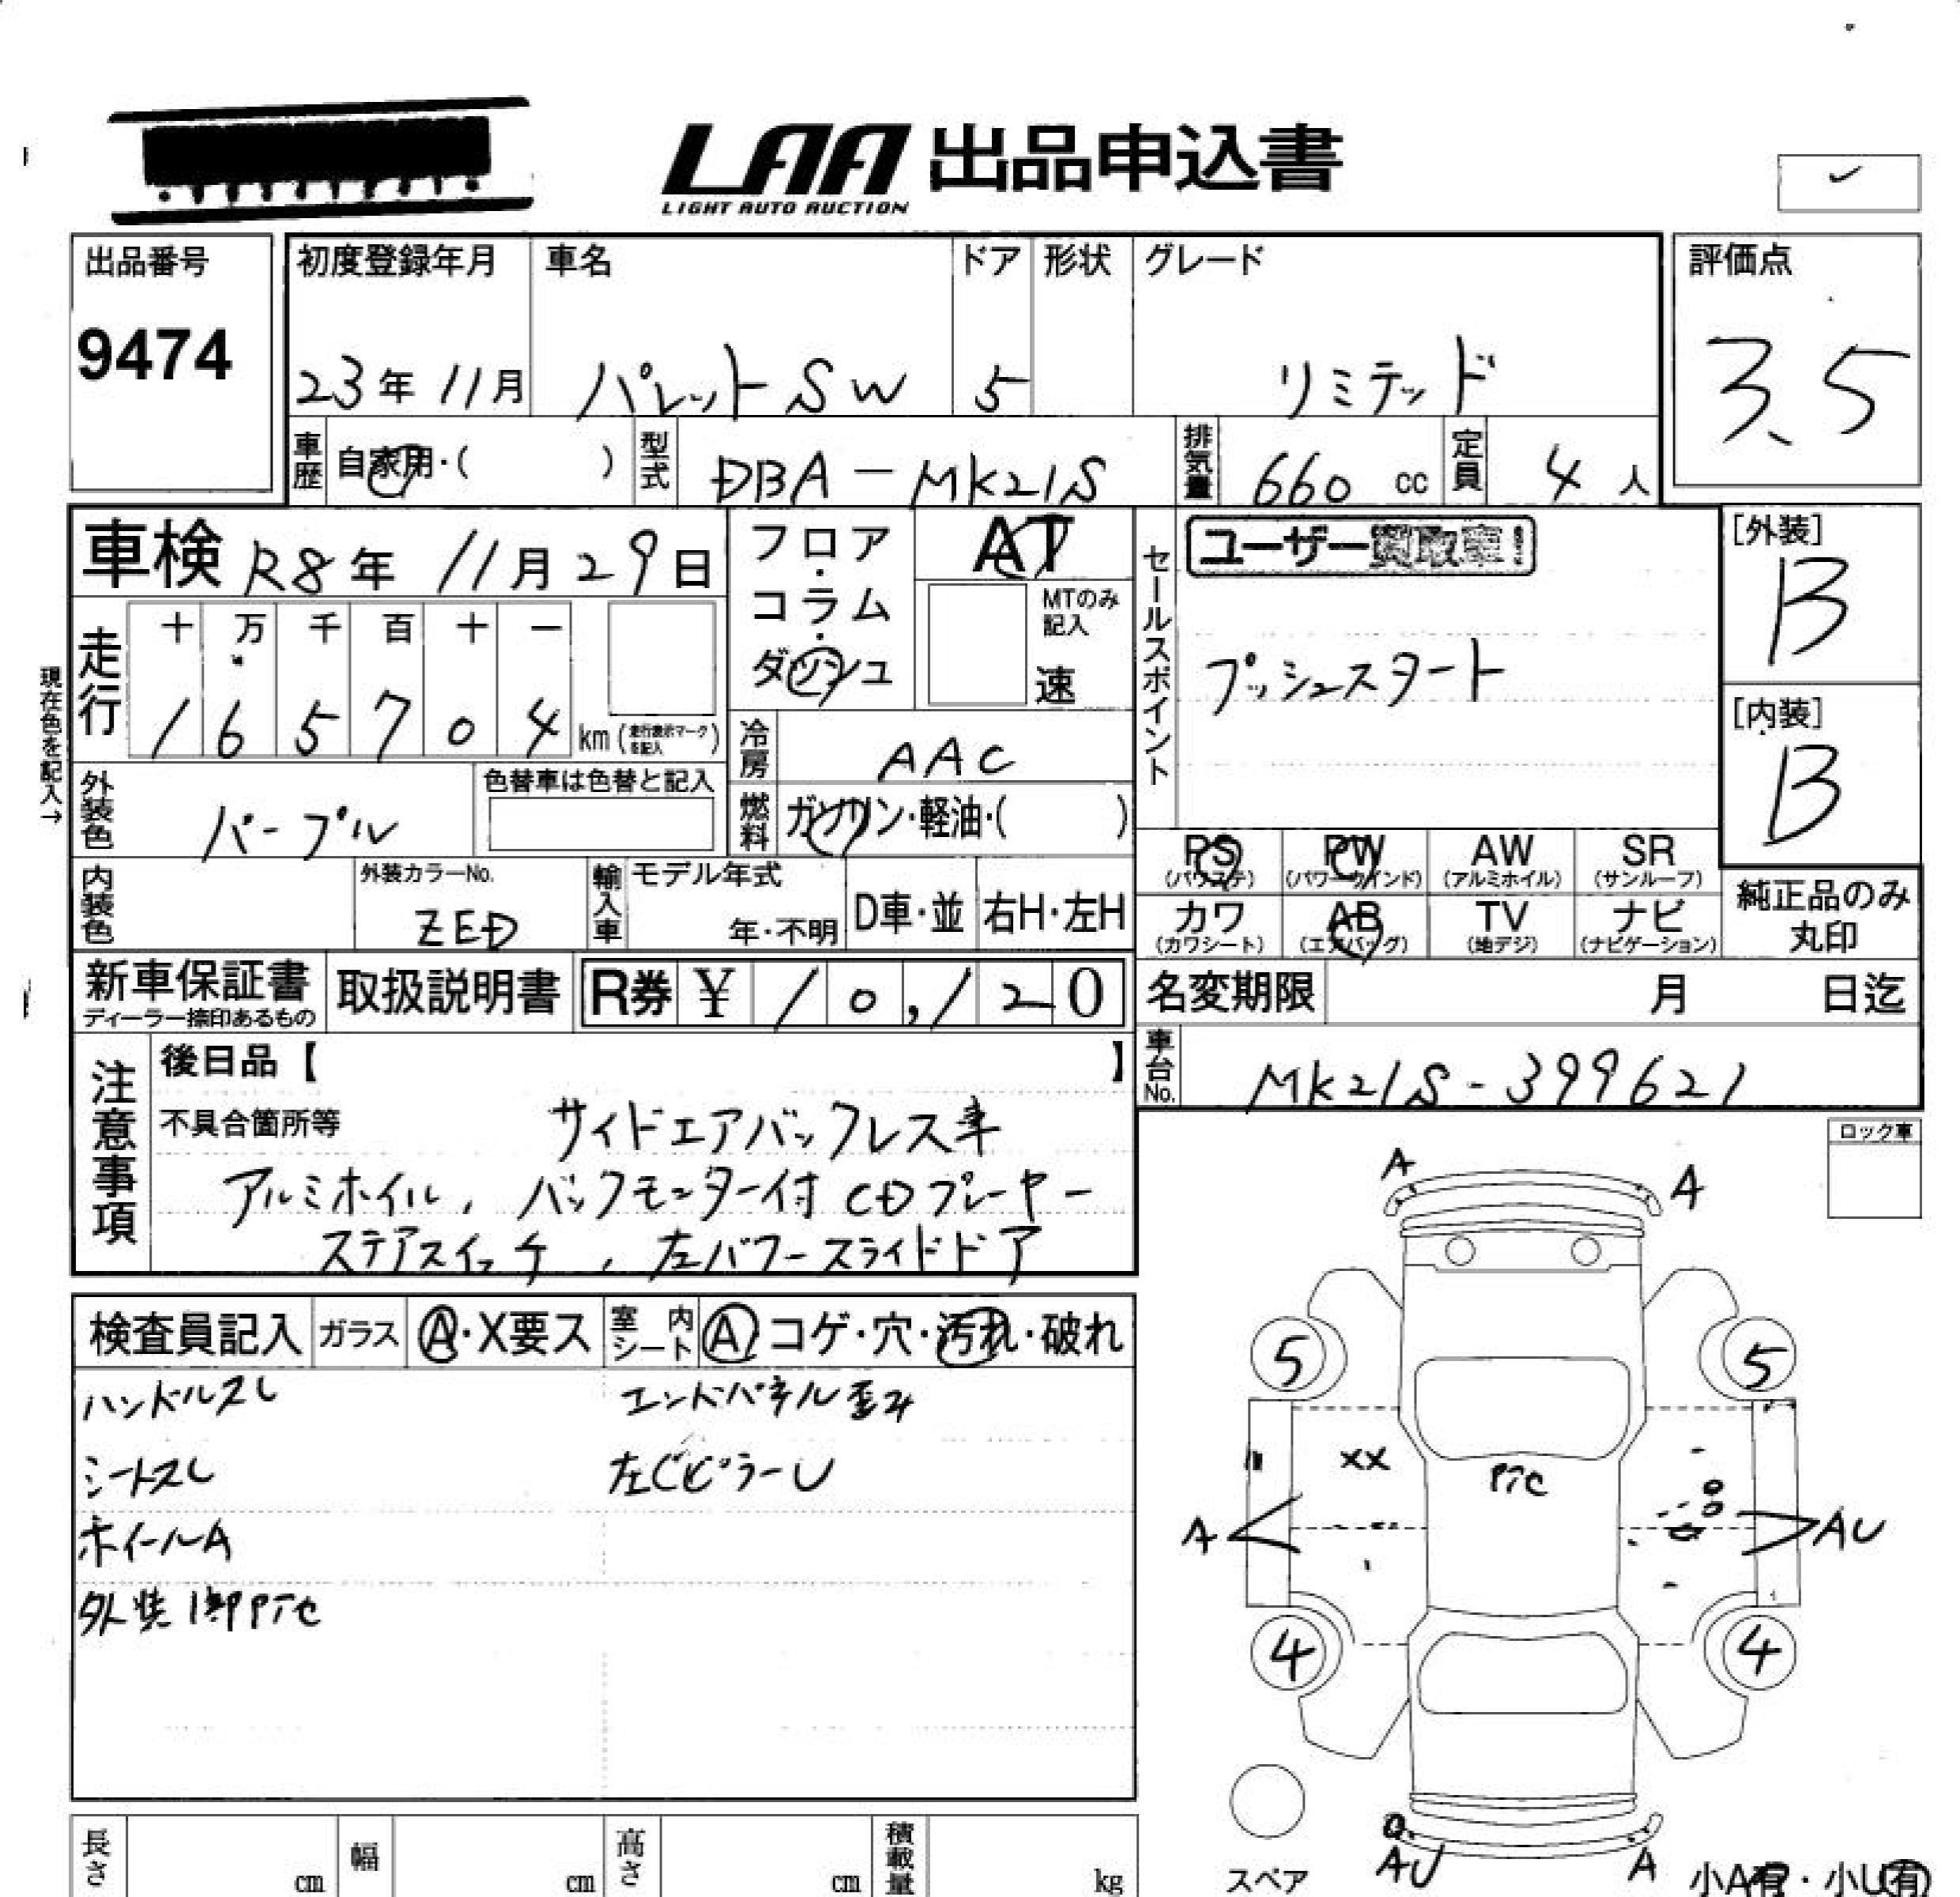 LAA 出品申込書
LIGHT AUTO AUCTION
出品番号
9474
初度登録年月
23年 11月
車名
パレット SW
ドア
5
形状
グレード
リミテッド
評価点
3.5
車歴
自家用・( )
型式
DBA-MK21S
排気量
660 cc
定員
4 人
車検 R8年 11月 29日
フロア・コラム・ダッシュ
AT
MTのみ記入
速
セールスポイント
ユーザー買取車!
プッシュスタート
[外装]
B
[内装]
B
現在色を記入→
走行
十 万 千 百 十 一
1 6 5 7 0 4 km (走行表示マークを記入)
冷房
AAC
燃料
ガソリン・軽油・( )
外装色
パープル
色替車は色替と記入
内装色
外装カラーNo.
ZED
輸入車
モデル年式
年・不明
D車・並
右H・左H
PS (パワステ)
PW (パワーウインド)
AW (アルミホイル)
SR (サンルーフ)
カワ (カワシート)
AB (エアバッグ)
TV (地デジ)
ナビ (ナビゲーション)
純正品のみ丸印
新車保証書
ディーラー捺印あるもの
取扱説明書
R券 ¥ 10,120
名変期限 月 日迄
車台No.
MK21S-399621
注意事項
後日品【 】
不具合箇所等
サイドエアバックレス車
アルミホイル, バックモニター付 CDプレーヤー
ステアスイッチ, 左パワースライドドア
ロック車
検査員記入
ガラス
A・X要ス
室内シート
A コゲ・穴・汚れ・破れ
ハンドルスレ
エンドパネル歪み
シートスレ
左CピラーU
ホイールA
外装1部Pﾃｾ
A
A
5
5
XX
Pﾃｾ
A
AU
4
4
スペア
AU
A
小A有・小U有
長さ cm
幅 cm
高さ cm
積載量 kg